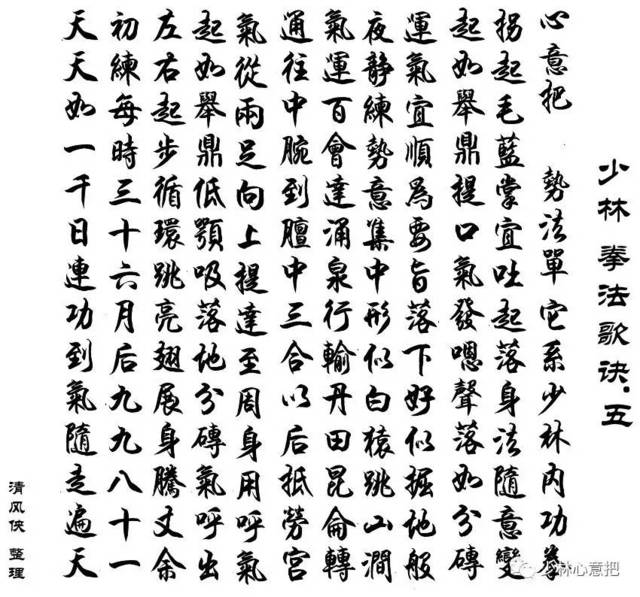 少林拳法歌诀.五
心意把 勢法單它系少林内功拳
拐起毛藍掌宜吐起落身法隨意變
起如舉鼎提口氣發嗯聲落如分磚
運氣宜順為要旨落下好似掘地般
夜静練勢意集中形似白猿跳山澗
氣運百會達涌泉行輸丹田昆侖轉
通往中腕到膻中三合以后抵勞宫
氣從兩足向上提達至周身用呼氣
起如舉鼎低顎吸落地分磚氣呼出
左右起步循環跳亮翅展身騰丈余
初練每時三十六月后九九八十一
天天如一千日連功到氣隨走遍天
清风侠 整理
少林心意把